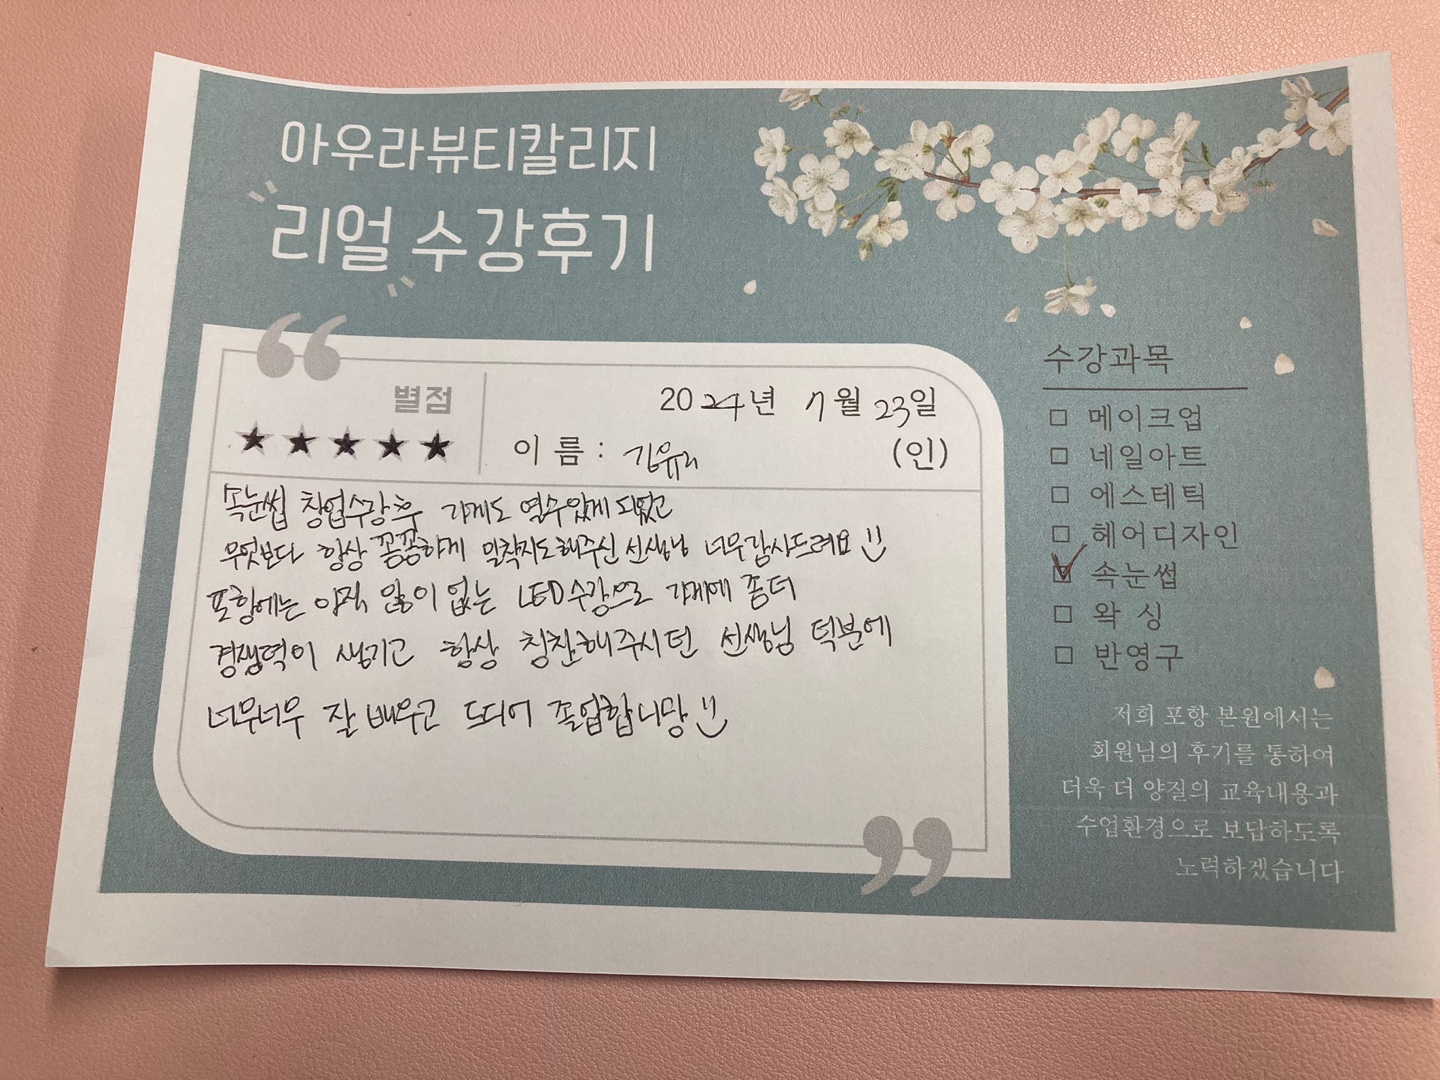 아우라뷰티칼리지
리얼 수강후기
별점
★★★★★
2024년 7월 23일
이 름 : 김유리 (인)
속눈썹 창업수강후 가게도 열수있게 되었고
무엇보다 항상 꼼꼼하게 밀착지도해주신 선생님 너무감사드려요
포항에는 아직 많이 없는 LED수강으로 가게에 좀더
경쟁력이 생기고 항상 칭찬해주시던 선생님 덕분에
너무너무 잘 배우고 드디어 졸업합니당
수강과목
□ 메이크업
□ 네일아트
□ 에스테틱
□ 헤어디자인
☑ 속눈썹
□ 왁 싱
□ 반영구
저희 포항 본원에서는
회원님의 후기를 통하여
더욱 더 양질의 교육내용과
수업환경으로 보답하도록
노력하겠습니다